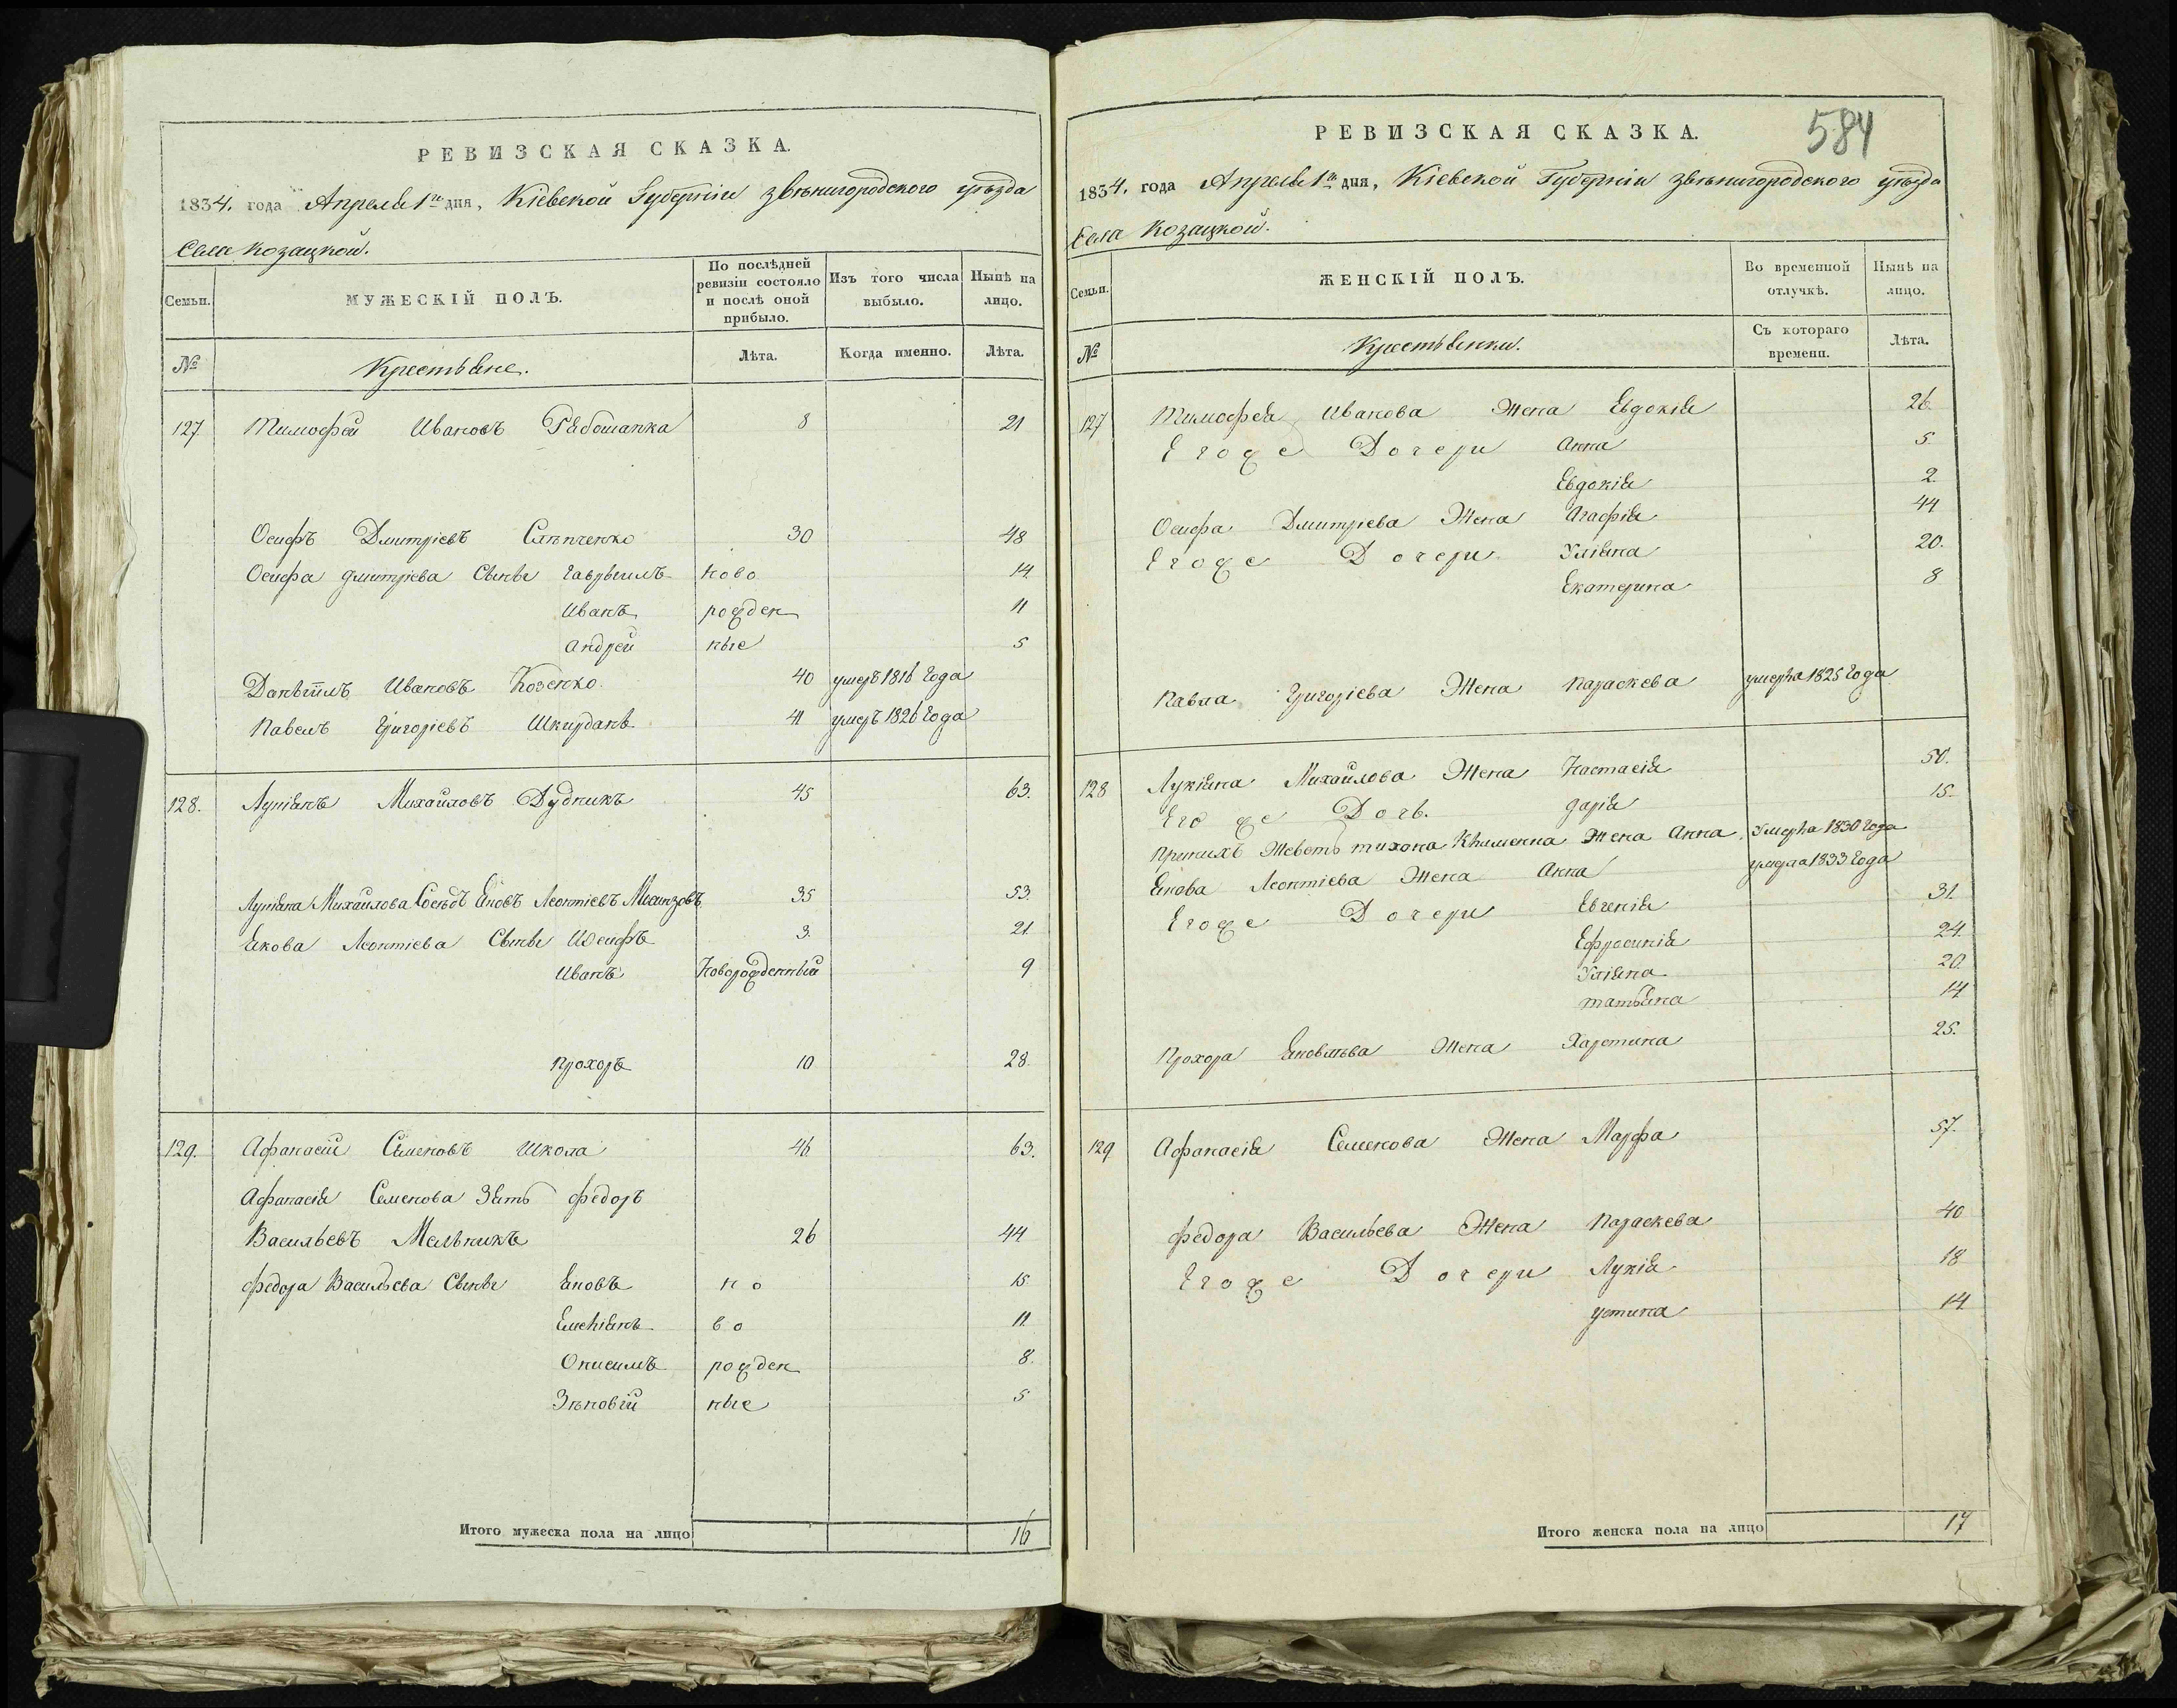 РЕВИЗСКАЯ СКАЗКА.
1834. года Апреля 1го дня, Кіевской Губерніи Звѣнигородского уѣзда
Села Козацкой.
Семьи.
МУЖЕСКІЙ ПОЛЪ.
По послѣдней ревизіи состояло и послѣ оной прибыло.
Изъ того числа выбыло.
Нынѣ на лицо.
№
Крестьяне.
Лѣта.
Когда именно.
Лѣта.
127 Тимофей Ивановъ Рябошапка 8 21
Осифъ Дмитріевъ Слѣпченко 30 48
Осифа Дмитріева Сынъы Гаврыилъ ново 14
Иванъ рожден 11
Андрей ные 5
Данѣіилъ Ивановъ Козенко 40 умеръ 1816 Года
Павелъ Григоріевъ Шкирданъ 41 умеръ 1826 Года
128. Лукіянъ Михайловъ Дудникъ 45 63.
Лукіяна Михайлова Сосѣдъ Яковъ Леонтіевъ 35 53.
Якова Леонтіева Сынъы Иосифъ 3. 21
Иванъ Новорожденный 9
Прохоръ 10 28.
129. Афанасій Семеновъ Школа 46 63.
Афанасія Семенова Зять Федоръ
Васильевъ Мельникъ 26 44
Федора Васильева Сынъы Яковъ но 15
Емеліянъ во 11.
Онисимъ рожден 8.
Зѣновій ные 5
Итого мужеска пола на лицо 16
584
РЕВИЗСКАЯ СКАЗКА.
1834. года Апреля 1го дня, Кіевской Губерніи Звѣнигородского уѣзда
Села Козацкой.
Семьи.
ЖЕНСКІЙ ПОЛЪ.
Во временной отлучкѣ.
Нынѣ на лицо.
№
Крестьянки.
Съ котораго времени.
Лѣта.
127 Тимофея Иванова Жена Евдокія 26.
Егоже Дочери Анна 5.
Евдокія 2.
Осифа Дмитріева Жена Агафія 44
Егоже Дочери Уліяна 20.
Екатерина 8
Павла Григоріева Жена Параскева умерла 1825 Года
128 Лукіяна Михайлова Жена Настасія 50.
Его же Дочь. Дарія 15.
Принихъ Живетъ Тихона Жена Анна умерла 1830 Года
Якова Леонтіева Жена Анна умерла 1833 Года
Егоже Дочери Евгенія 31.
Ефросинія 24.
Уліяна 20.
Татьяна 14
Прохора Яковлѣва Жена Харетина 25.
129 Афанасія Семенова Жена Марфа 57.
Федора Васильева Жена Параскева 40
Егоже Дочери Лукія 18
Устина 14
Итого женска пола на лицо 17